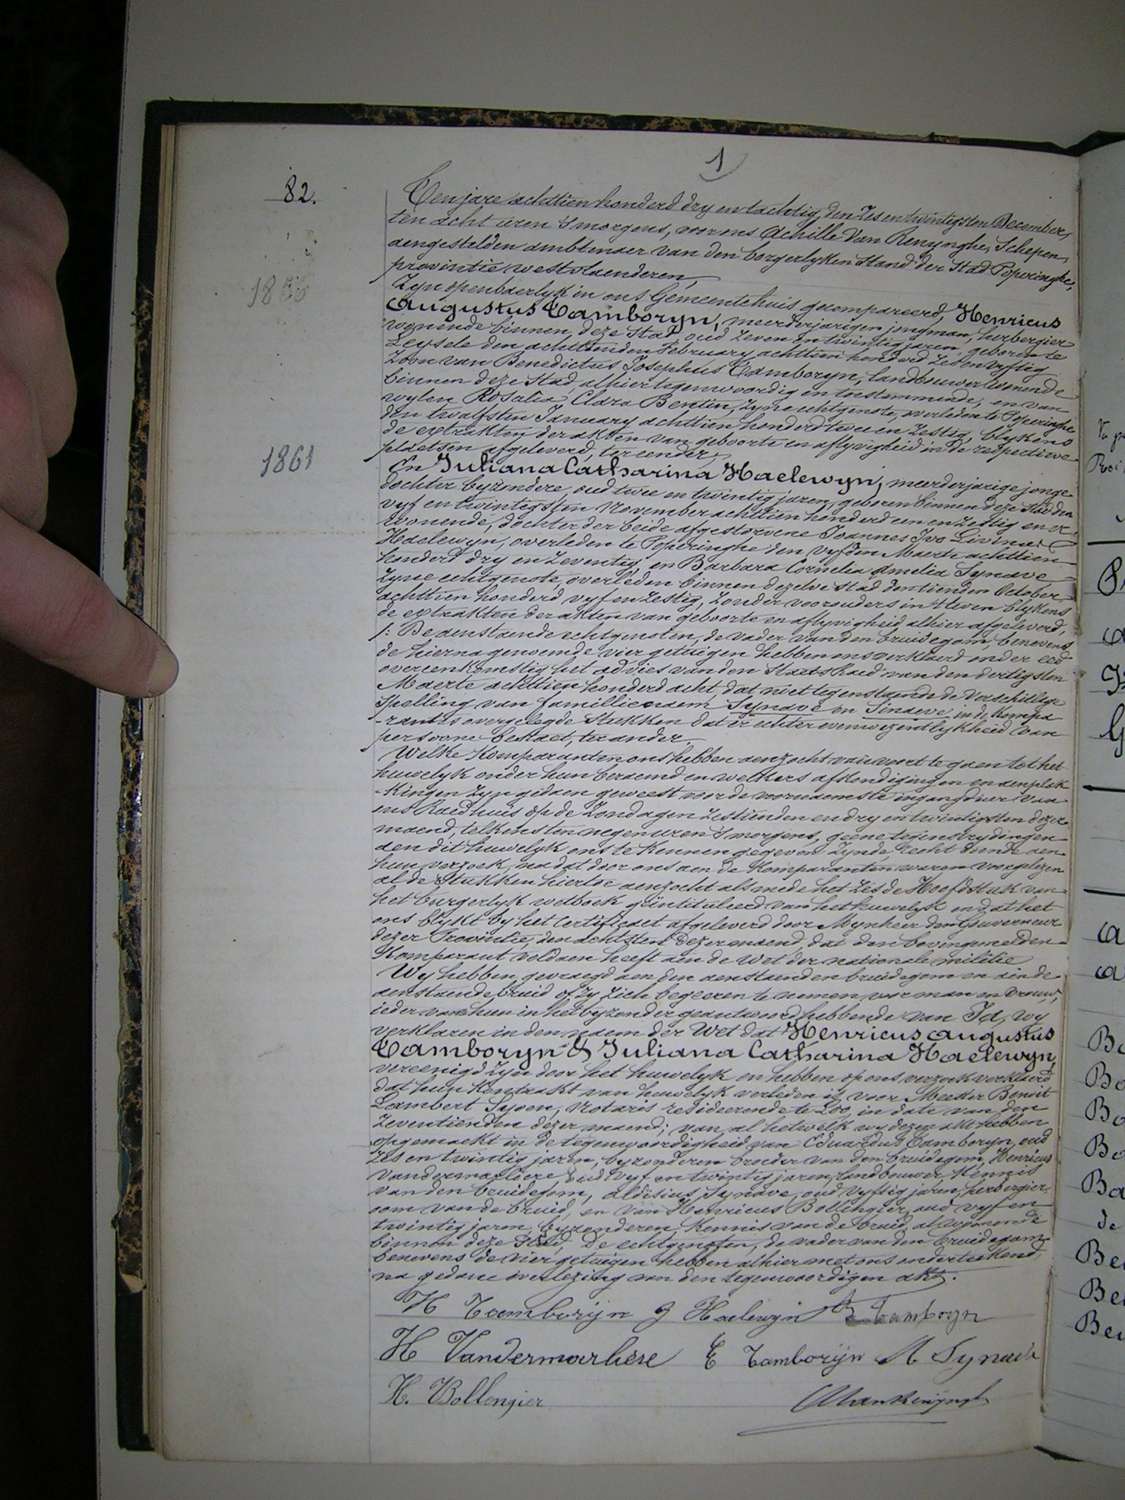 1
82.
Ten jare achttien honderd dry en tachtig, den zes en twintigsten December,
ten acht uren 's morgens, voor ons Achille Van Renynghe, Schepen,
aengestelden ambtenaer van den borgerlyken stand der Stad Poperinghe,
provintie westvlaenderen
Zyn openbaerlyk in ons Gemeentehuis gecompareerd, Henricus
Augustus Tamboryn, meerderjarigen jongman, herbergier
wonende binnen deze Stad, oud zeven en twintig jaren, geboren te
Leysele den achttienden February achttien honderd zes en vyftig
Zoon van Benedictus Josephus Tamboryn, landbouwer wonende
binnen deze Stad, alhier tegenwoordig en toestemmende, en van
wylen Rosalia Clara Bentin, zyne echtgenote, overleden te Poperinghe
den twaelfsten January achttien honderd twee en zestig, blykens
de extrakten der akten van geboorte en aflyvigheid in de respectieve
plaetsen afgeleverd, ter eender
1861
En Juliana Catharina Haelewyn, meerderjarige jonge
dochter byzondere, oud twee en twintig jaren, geboren binnen deze Stad den
vyf en twintigsten November achttien honderd een en zestig en er
wonende, dochter der beide afgestorvene Joannes Ivo Livinus
Haelewyn, overleden te Poperinghe den vyfden Maerte achttien
honderd dry en zeventig, en Barbara Cornelia Amelia Synave
zyne echtgenote, overleden binnen dezelve Stad den tienden October
achttien honderd vyf en zestig, zonder voorouders in 't leven blykens
de extrakten der akten van geboorte en aflyvigheid alhier afgeleverd,
De aenstaende echtgenoten, de vader van den bruidegom, benevens
de hierna genoemde vier getuigen hebben ons verklaerd onder eed
overeenkomstig het advies van den Staets Raed van den dertigsten
Maerte achttien honderd acht, dat niettegenstaende de verschillige
spelling van familienaem Synave en Sinaeve in de kompa
-rantes overgelegde stukken dat er echter eenwezentlykheid van
persoone bestaet, ter ander
Welke Komparanten ons hebben aenzocht van voort te gaen tot het
huwelyk onder hun beraemd en welkers afkondigingen en aenplak
-kingen zyn gedaen geweest voor de voornaemste ingangdeur van
ons Raedhuis op de Zondagen zestienden en dry en twintigsten dezer
maend, telkens ten negen uren 's morgens, geene tegenstrydingen
aen dit huwelyk ons te kennen gegeven zynde, recht doende aen
hun verzoek, na dat door ons aen de Komparanten waren voorgelezen
al de stukken hiertoe aenzocht alsmede het zesde Hoofdstuk van
het burgerlyk wetboek geintituleerd van het huwelyk en dat het
ons blykt by het Certificaet afgeleverd door Mynheer den Gouverneur
dezer Provintie, den achtsten dezer maend, dat den bovengemelden
Komparant voldaen heeft aen de Wet der nationale militie
Wy hebben gevraegd aen den aenstaenden bruidegom en aen de
aenstaende bruid of zy zich begeeren te nemen voor man en vrouw,
ieder van hun in het byzonder geantwoord hebbende van Ja, wy
verklaren in den naem der Wet dat Henricus Augustus
Tamboryn & Juliana Catharina Haelewyn,
vereenigd zyn door het huwelyk en hebben op ons verzoek verklaerd
dat hun Kontrakt van huwelyk verleden is voor Meester Benoit
Lambert Syoen, Notaris resideerende te Loo, in date van den
zeventienden dezer maend; van al hetwelk wy dezen akt hebben
opgemaekt in de tegenwoordigheid van Eduardus Tamboryn, oud
zes en twintig jaren, byzonderen broeder van den bruidegom, Henricus
Vandermarliere, oud vyf en twintig jaren, landbouwer kennis
van den bruidegom, Aldilius Synave, oud vyftig jaren, herbergier,
oom van de bruid, en van Henricus Bollengier, oud vyf en
twintig jaren, byzonderen, kennis van de bruid, al wonende
binnen deze Stad. De echtgenoten, de vader van den bruidegom
benevens de vier getuigen hebben alhier met ons onderteekend,
na gedane voorlezing van den tegenwoordigen akt.
H Tamborijn J Haelewijn B Tamboryn
H Vandermarliere E Tamborijn A Synave
H. Bollengier AVanRenijnghe